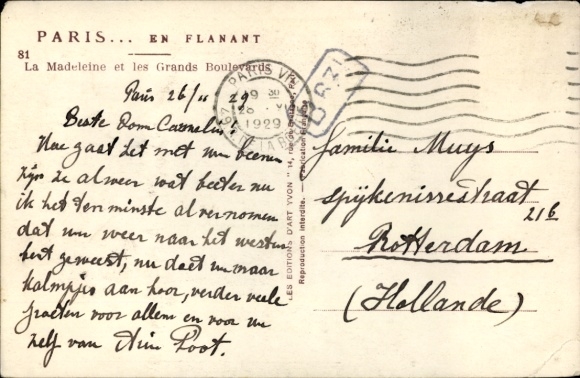 PARIS... EN FLANANT
81
La Madeleine et les Grands Boulevards
PARIS VIII
1929
Paris 26/11 29
Beste Oom Cornelis!
Hoe gaat het met uw beenen
zijn ze alweer wat beter nu
ik heb ten minste al vernomen
dat uw weer naar het
bent geweest, nu doet uw maar
kalmpjes aan hoor, verder veele
groeten voor allem en voor uw
zelf van Poot.
LES EDITIONS D'ART YVON
Reproduction interdite. Fabrication Française
Familie Muys
Spijkenissestraat
21b
Rotterdam
(Hollande)